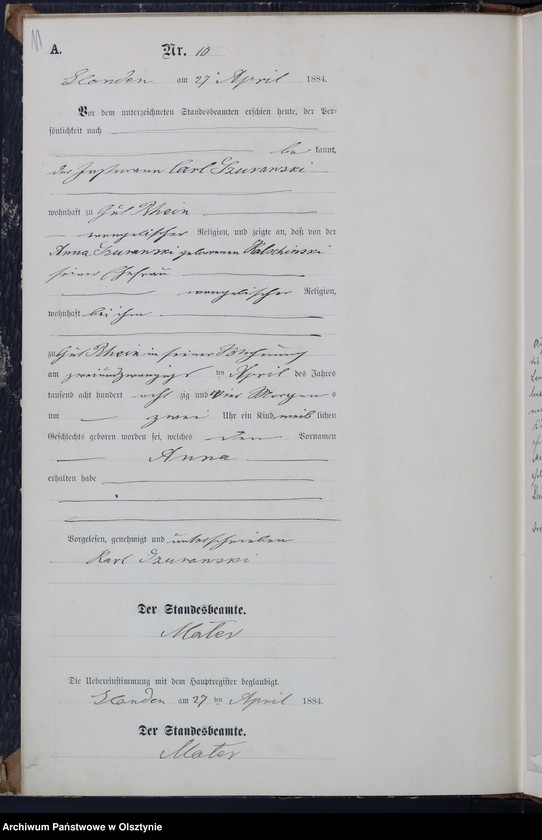 11
A. Nr. 10
am 27 April 1884.
Vor dem unterzeichneten Standesbeamten erschien heute, der Per-
sönlichkeit nach
be kannt,
der Instmann Carl Szuranski
wohnhaft zu Gut Rhein
evangelischer Religion, und zeigte an, daß von der
Anna Szuranski geborenen
seiner Ehefrau
evangelischer Religion,
wohnhaft bei ihm
zu Gut Rhein in seiner Wohnung
am zweiundzwanzigs ten April des Jahres
tausend acht hundert acht zig und vier Morgen s
um zwei Uhr ein Kind weib lichen
Geschlechts geboren worden sei, welches den Vornamen
Anna
erhalten habe
Vorgelesen, genehmigt und unterschrieben
Karl Szuranski
Der Standesbeamte.
Mater
Die Uebereinstimmung mit dem Hauptregister beglaubigt.
am 27 ten April 1884.
Der Standesbeamte.
Mater
Archiwum Państwowe w Olsztynie